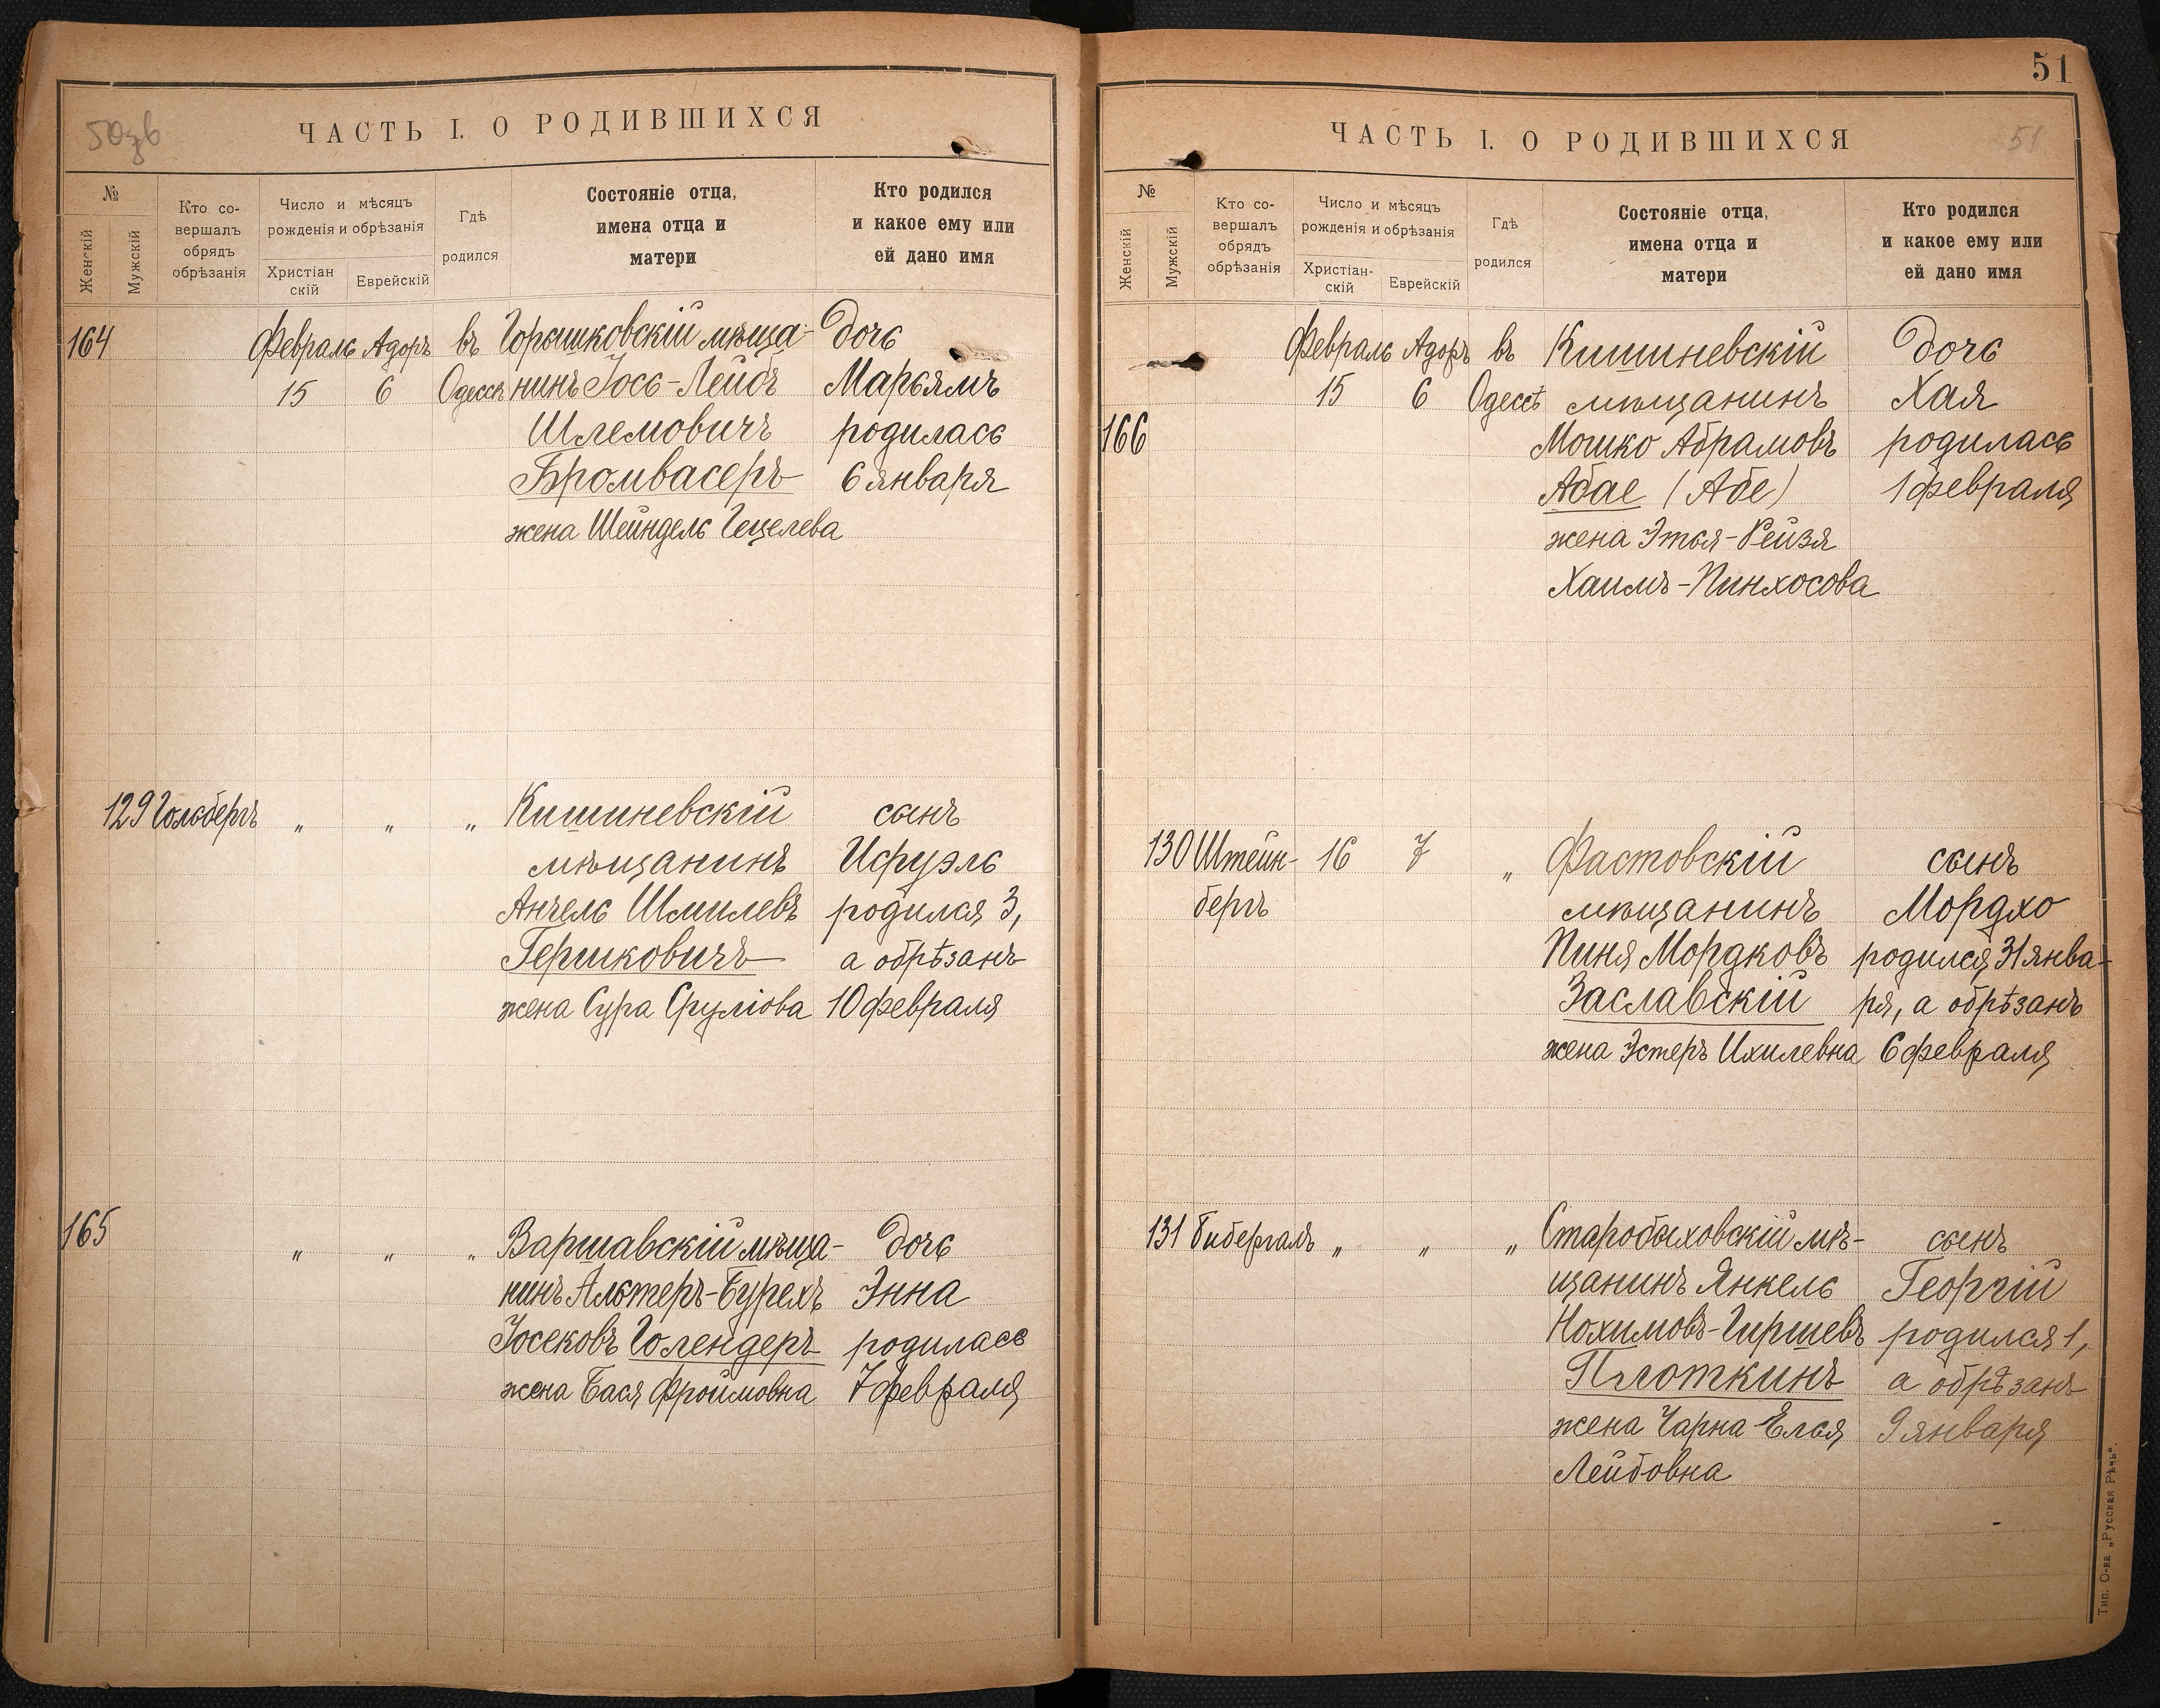 50зв
ЧАСТЬ I. О РОДИВШИХСЯ
№
Женскій
Мужскій
Кто со-
вершалъ
обрядъ
обрѣзанія
Число и мѣсяцъ
рожденія и обрѣзанія
Христіан
скій
Еврейскій
Гдѣ
родился
Состояніе отца,
имена отца и
матери
Кто родился
и какое ему или
ей дано имя
164 Февраль Адоръ въ Горошковскій мѣща- дочь
15 6 Одессѣ нинъ Іось-Лейбъ Марьямъ
Шлемовичъ родилась
Бромвасеръ 6 января
жена Шейндель Гецелева
129 Гольбергъ „ „ „ Кишиневскій сынъ
мѣщанинъ Исруэль
Анчель Шмилевъ родился 3,
Гершковичъ а обрѣзанъ
жена Сура Сруліова 10 февраля
165 „ „ „ Варшавскій мѣща- дочь
нинъ Альтеръ-Бурехъ Энна
Іосековъ Голендеръ родилась
жена Бася Фроимовна 7 февраля
51
ЧАСТЬ I. О РОДИВШИХСЯ
51
№
Женскій
Мужскій
Кто со-
вершалъ
обрядъ
обрѣзанія
Число и мѣсяцъ
рожденія и обрѣзанія
Христіан-
скій
Еврейскій
Гдѣ
родился
Состояніе отца,
имена отца и
матери
Кто родился
и какое ему или
ей дано имя
Февраль Адоръ въ Кишиневскій дочь
15 6 Одессѣ мѣщанинъ Хая
166 Мошко Абрамовъ родилась
Абае (Абе) 1 февраля
жена Этья-Рейзя
Хаимъ-Пинхосова
130 Штейн- 16 7 „ Фастовскій сынъ
бергъ мѣщанинъ Мордхо
Пиня Мордковъ родился 31 янва-
Заславскій ря, а обрѣзанъ
жена Эстеръ Ихилевна 6 февраля
131 Бибергалъ „ „ „ Старобыховскій мѣ- сынъ
щанинъ Янкель Георгій
Нохимовъ-Гиршевъ родился 1,
Плоткинъ а обрѣзанъ
жена Чарна Елья 9 января
Лейбовна
Тип. О-ва „Русская Рѣчь".